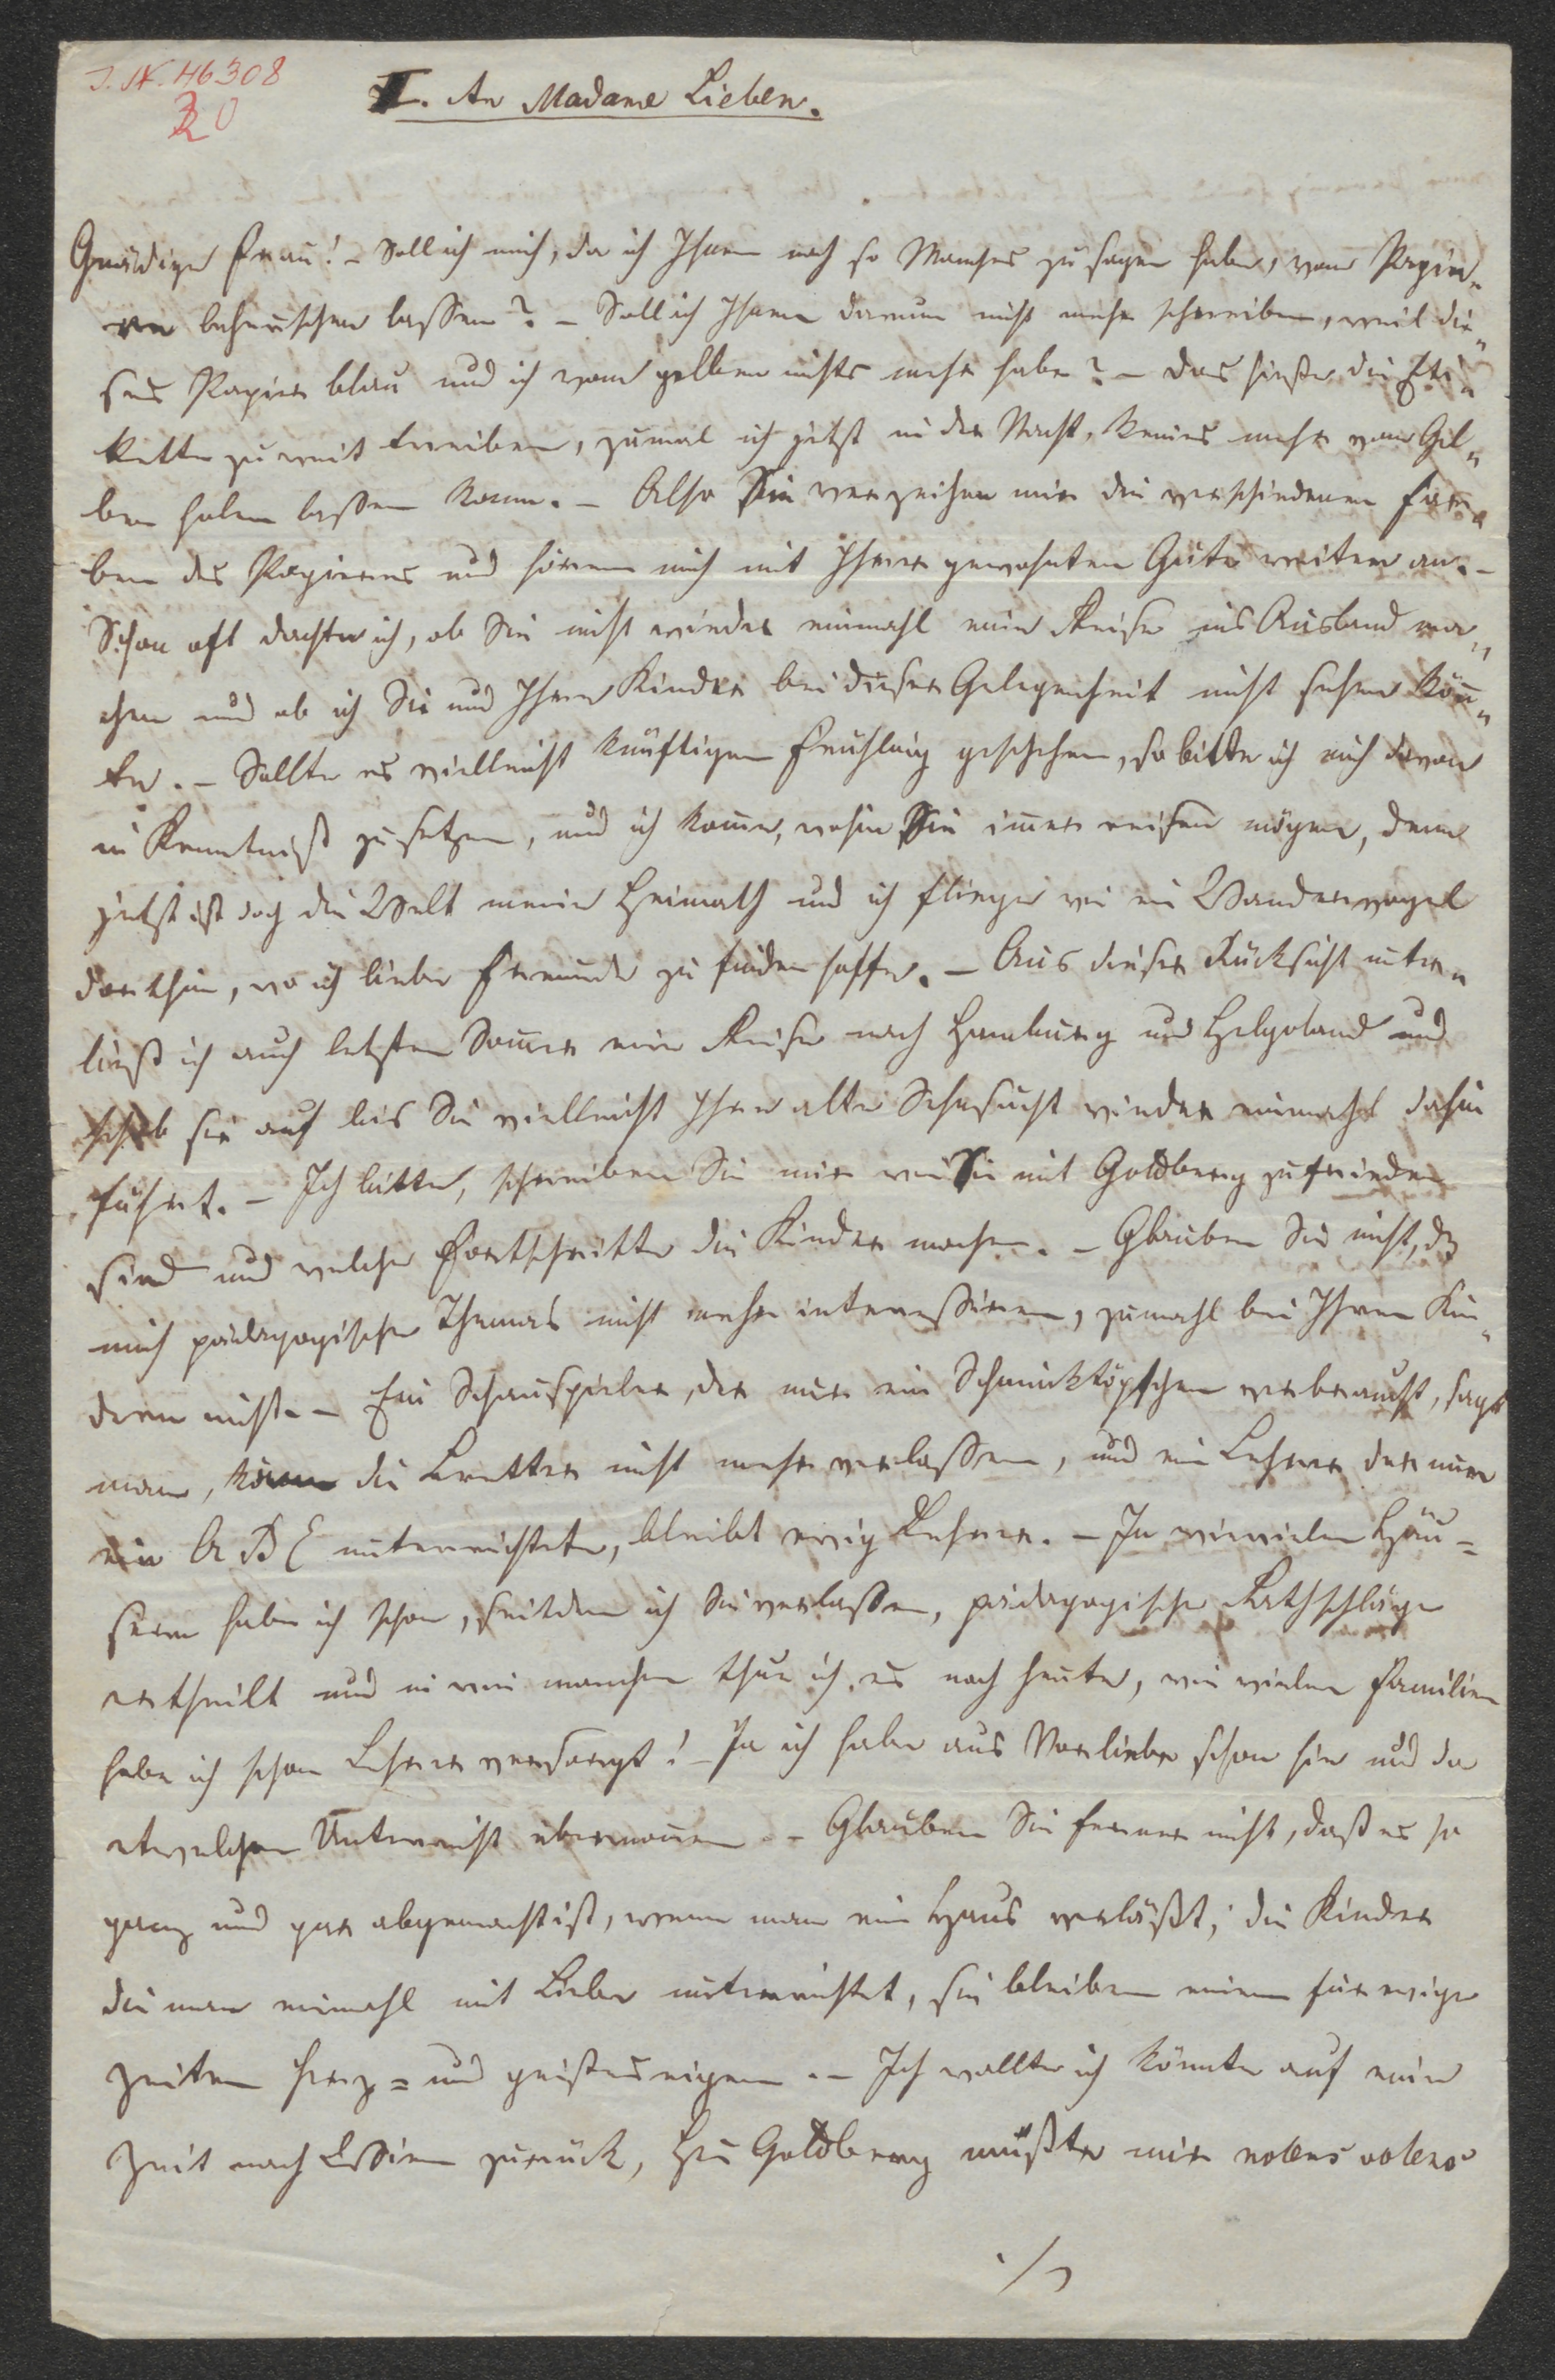 J. N. 46308
20
I. An Madame Lieben.
Gnädige Frau! – Soll ich mich, da ich Ihnen noch so Manches zu sagen habe, vom Papie„
re beherrschen lassen? – Soll ich Ihnen darum nicht mehr schreiben, weil die„
ses Papier blau und ich vom gelben nichts mehr habe? – Das hieße die Eti„
kette zu weit treiben, zumal ich jetzt in der Nacht, keines mehr vom Gel„
ben holen lassen kann. – Also Sie verzeihen mir die verschiedenen Far„
ben des Papieres und hören mich mit Ihrer gewohnten Güte weiter an. –
Schon oft dachte ich, ob Sie nicht wieder einmahl eine Reise ins Ausland ma„
chen und ob ich Sie und Ihre Kinder bei dieser Gelegenheit nicht sehen kön̄„
te. – Sollte es vielleicht künftigen Frühling geschehen, so bitte ich mich davon
in Kenntniß zu setzen, und ich kom̄e, wohin Sie im̄er reisen mögen, denn
jetzt ist doch die Welt meine Heimath und ich fliege wie ein Wandervogel
dorthin, wo ich liebe Freunde zu finden hoffe. – Aus dieser Rücksicht unter„
ließ ich auch letzten Som̄er eine Reise nach Hamburg und Helgoland und
schob sie auf bis Sie vielleicht Ihre alte Sehnsucht wieder einmahl dahin
führt. – Ich bitte, schreiben Sie mir wie Sie mit Goldberg zufrieden
sind und welche Fortschritte die Kinder machen. – Glauben Sie nicht, dß
mich pädagogische Themas nicht mehr interessiren, zumahl bei Ihren Kin„
dern nicht. – Ein Schauspieler, der nur ein Schminktöpfchen verbraucht, sagt
man, kann die Bretter nicht mehr verlassen, und ein Lehrer der nur
ein A B C unterrichtete, bleibt ewig Lehrer. – In wievielen Häu=
sern habe ich schon, seitdem ich Sie verlassen, pädagogische Rathschläge
ertheilt und in wie manchen thue ich es noch heute, wie vielen Familien
habe ich schon Lehrer versorgt! – Ja ich habe aus Vorliebe schon hie und da
etwelchen Unterricht übernom̄en. – Glauben Sie ferner nicht, daß es so
ganz und gar abgemacht ist, wenn man ein Haus verläßt; die Kinder
die man einmahl mit Liebe unterrichtet, sie bleiben einem für ewige
Zeiten herz= und geisteseigen. – Ich wollte ich könnte auf eine
Zeit nach zurück, Hr Goldberg müßte mir nolens volens
./.